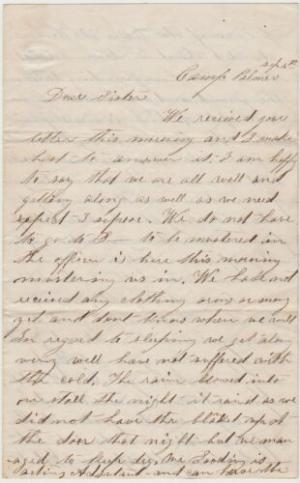 Sept 4th
Camp Palmer
Dear Sister
We received your
letter this morning and I make
hast to answer it. I am happy
to say that we are all well and
getting along as well as we need
expect I supose. We do not have
to go to B— to be mustered in
the officer is here this morning
mustering us in. We have not
recieved any clothing arms or money
yet and dont know when we will
In regard to sleeping we get along
very well have not suffered with
the cold. The rain blowed into
our stall the night it raind as we
did not have the blaket up at
the door that night but we man
aged to keep dry. Mr Gooding is
acting Adjutant and can have the